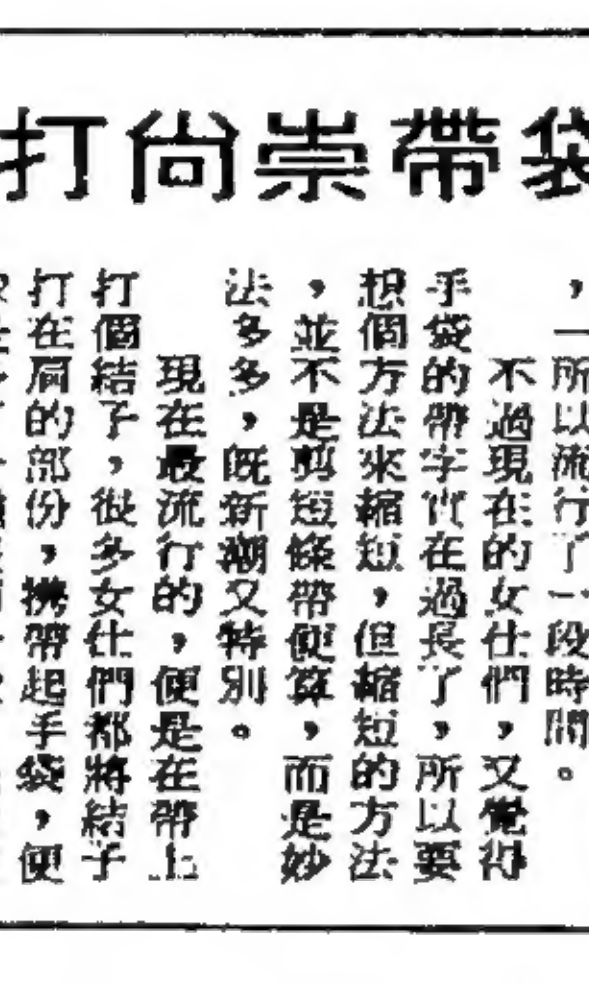 袋帶崇尚打
，一所以流行了一段時間。
不過現在的女仕們，又覺得
手袋的帶字實在過長了，所以要
想個方法來縮短，但縮短的方法
，並不是剪短條帶便算，而是妙
法多多，既新潮又特別。
現在最流行的，便是在帶上
打個結子，很多女仕們都將結子
打在肩的部份，携帶起手袋，便